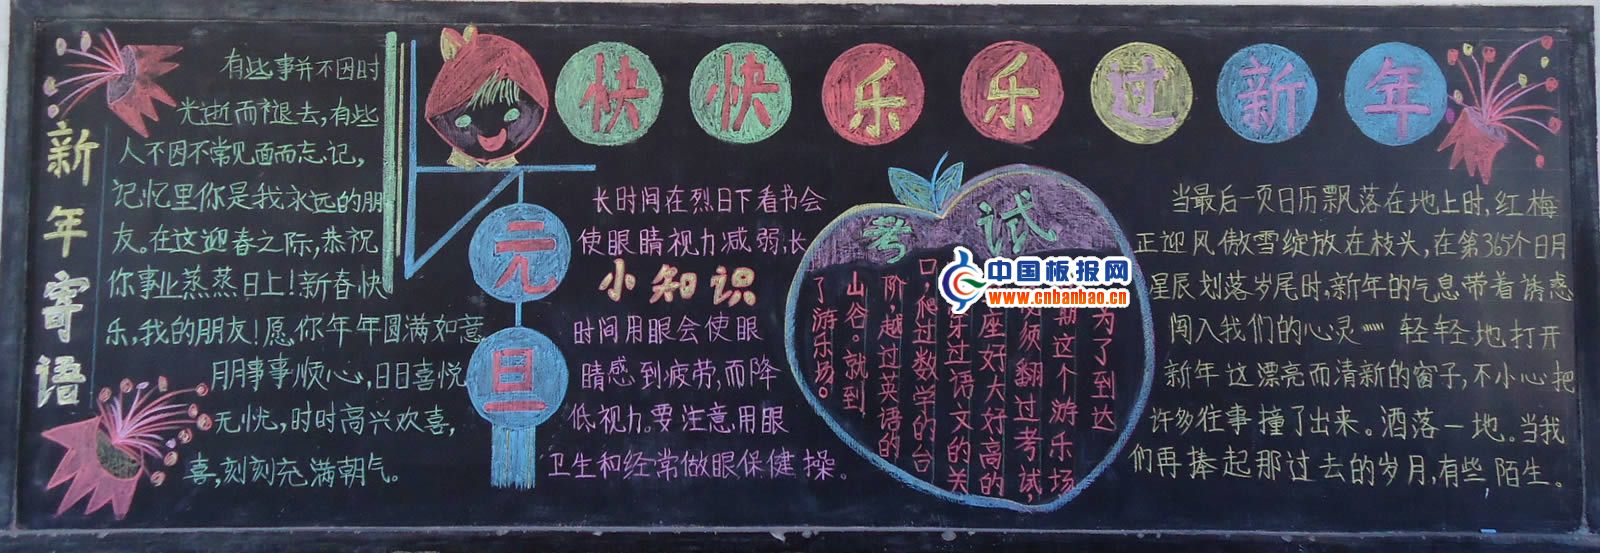 快快乐乐过新年
新年寄语
有些事并不因时
光逝而褪去,有些
人不因不常见面而忘记,
记忆里你是我永远的朋
友。在这迎春之际,恭祝
你事业蒸蒸日上!新春快
乐,我的朋友!愿你年年圆满如意
朋事事顺心,日日喜悦
无忧,时时高兴欢喜,
喜,刻刻充满朝气。
元旦
长时间在烈日下看书会
使眼睛视力减弱,长
小知识
时间用眼会使眼
睛感到疲劳,而降
低视力。要注意用眼
卫生和经常做眼保健操。
考试
为了到达
期这个游乐场,
须翻过考试,
座好大好高的
牙过语文的关
口,爬过数学的台
阶,越过英语的
山谷。就到
了游乐场。
中国板报网
www.cnbanbao.cn
当最后一页日历飘落在地上时,红梅
正迎风傲雪绽放在枝头,在第365个日月
星辰划落岁尾时,新年的气息带着诱惑
闯入我们的心灵……轻轻地打开
新年这漂亮而清新的窗子,不小心把
许多往事撞了出来。洒落一地。当我
们再捧起那过去的岁月,有些陌生。